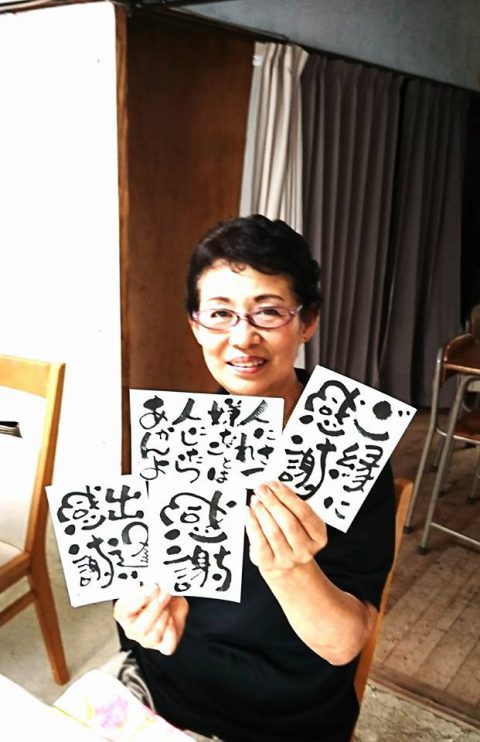 人にされて
嫌なことは
人にしたら
あかんよ
ご縁に
感謝
出逢
感謝
感謝